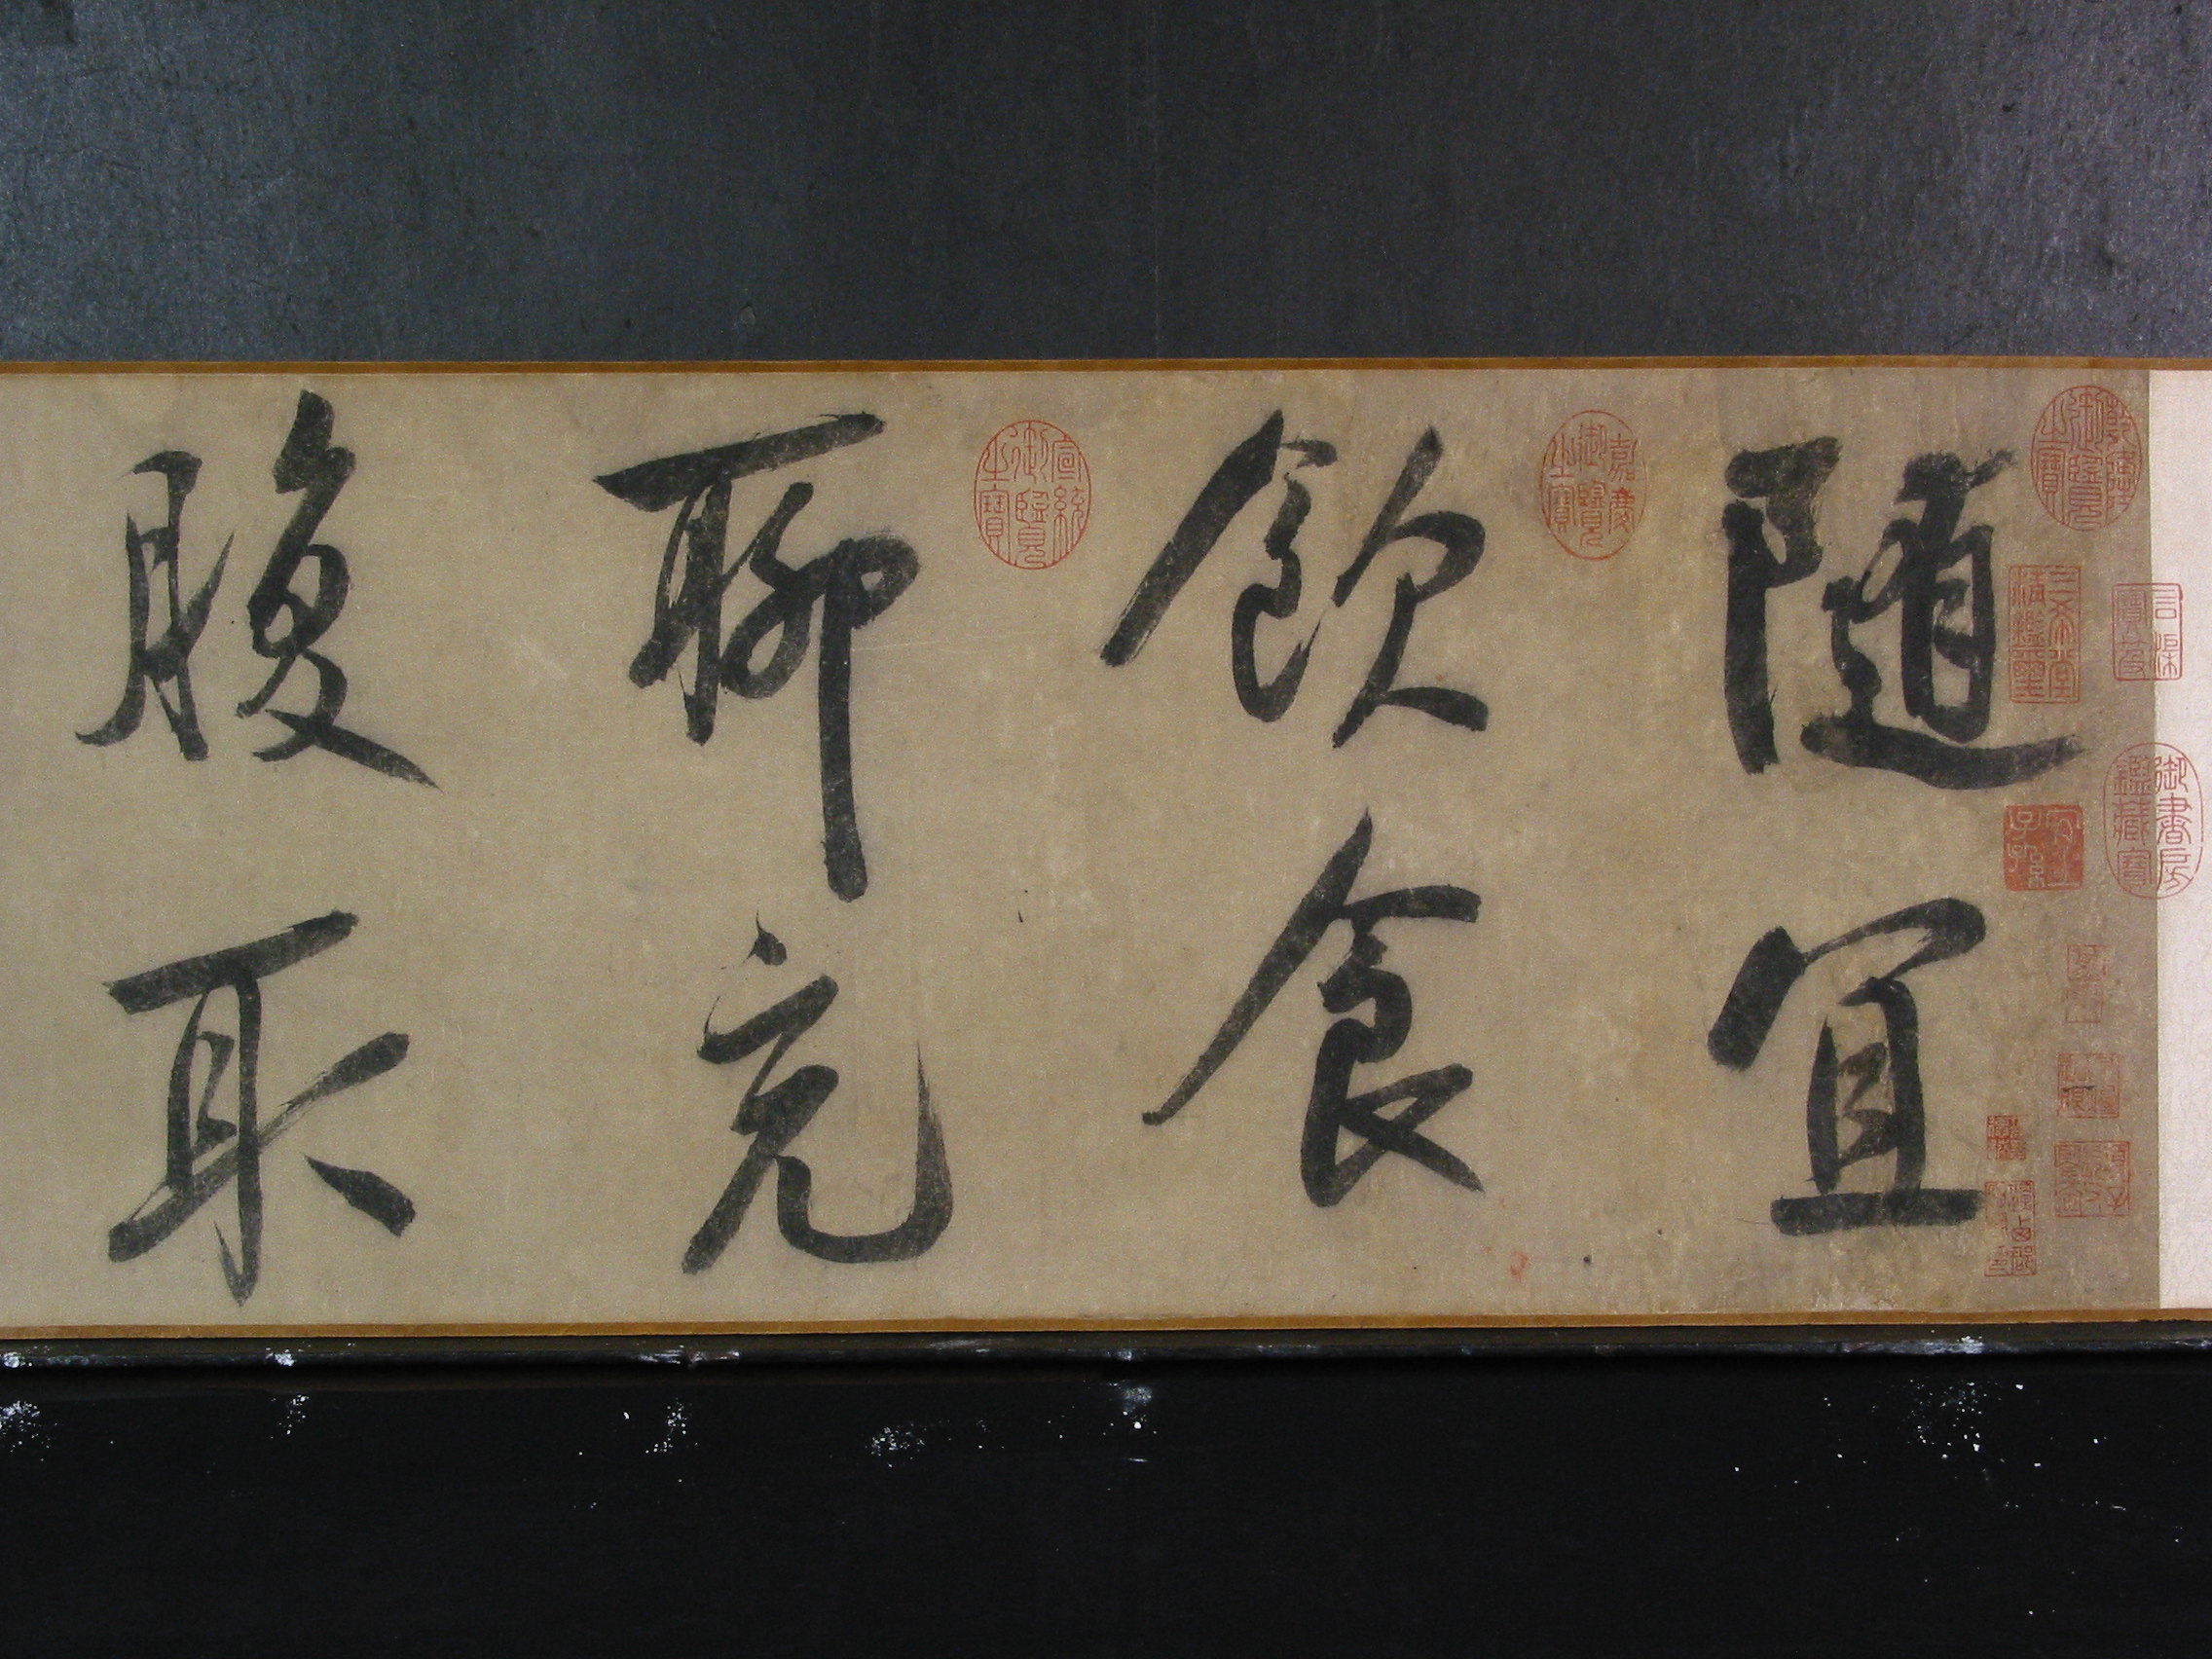 随宜
飲食
聊充
腹取
乾隆御覽之寶
三希堂精鑑璽
宜子孫
御書房鑑藏寶
嘉慶御覽之寶
宣統御覽之寶